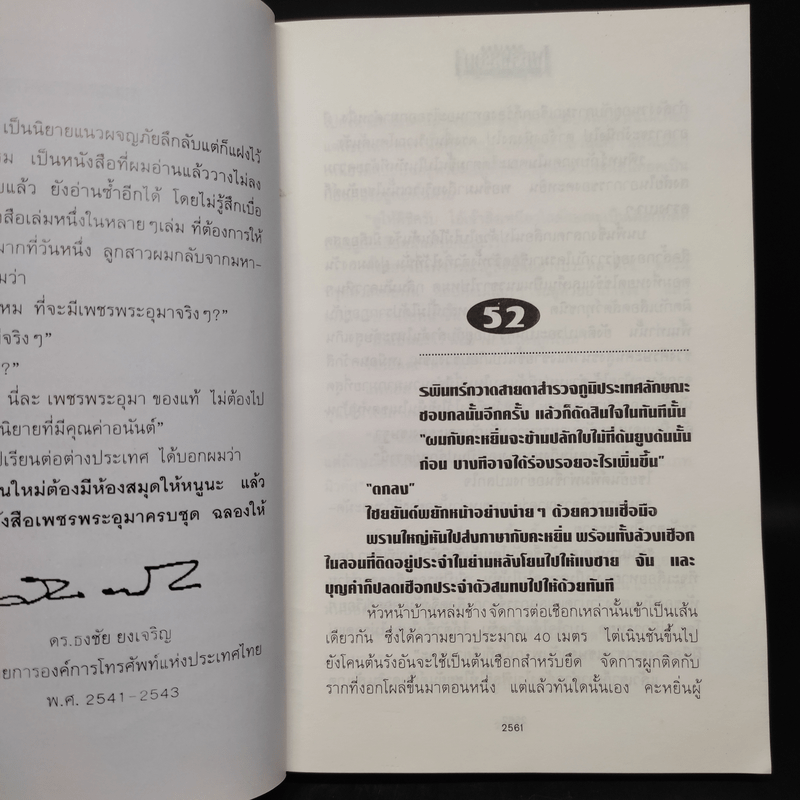 เป็นนิยายแนวผจญภัยลึกลับแต่ก็แฝงไว้
เป็นหนังสือที่ผมอ่านแล้ววางไม่ลง
แล้ว ยังอ่านซ้ำอีกได้ โดยไม่รู้สึกเบื่อ
สือเล่มหนึ่งในหลายๆเล่ม ที่ต้องการให้
มากที่วันหนึ่ง ลูกสาวผมกลับจากมหา-
มว่า
หม ที่จะมีเพชรพระอุมาจริงๆ?"
จริงๆ"
?"
นี่ละ เพชรพระอุมา ของแท้ ไม่ต้องไป
นิยายที่มีคุณค่าอนันต์"
ปเรียนต่อต่างประเทศ ได้บอกผมว่า
นใหม่ต้องมีห้องสมุดให้หนูนะ แล้ว
งสือเพชรพระอุมาครบชุด ฉลองให้
ดร.ธงชัย ยงเจริญ
ยการองค์การโทรศัพท์แห่งประเทศไทย
พ.ศ. 2541-2543
52
รพินทร์กวาดสายตาสำรวจภูมิประเทศลักษณะ
ชอบกลนั้นอีกครั้ง แล้วก็ตัดสินใจในทันทีนั้น
"ผมกับคะหยิ่นจะข้ามปลักใบไม้ที่ต้นยูงต้นนั้น
ก่อน บางทีอาจได้ร่องรอยอะไรเพิ่มขึ้น"
"ตกลง"
ไชยยันต์พยักหน้าอย่างง่ายๆ ด้วยความเชื่อมือ
พรานใหญ่หันไปส่งภาษากับคะหยิ่น พร้อมทั้งล้วงเชือก
ไนลอนที่ติดอยู่ประจำในย่ามหลังโยนไปให้แงซาย จัน และ
บุญคำก็ปลดเชือกประจำตัวสมทบไปให้ด้วยทันที
หัวหน้าบ้านหล่มช้าง จัดการต่อเชือกเหล่านั้นเข้าเป็นเส้น
เดียวกัน ซึ่งได้ความยาวประมาณ 40 เมตร ไต่เนินชันขึ้นไป
ยังโคนต้นรังอันจะใช้เป็นต้นเชือกสำหรับยึด จัดการผูกติดกับ
รากที่งอกโผล่ขึ้นมาตอนหนึ่ง แต่แล้วทันใดนั้นเอง คะหยิ่นผู้
2561